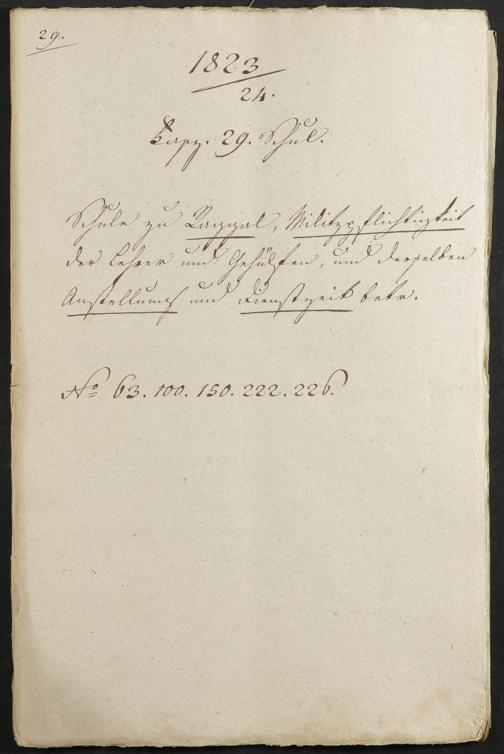 29.
1823
24.
Fasz. 29. Schul.
Schule zu Raggal, Militzpflichtigkeit
der Lehrer und Gehülfen, und derselben
Anstellung und Dienstzeit betr.
No 63. 100. 150. 222. 226.